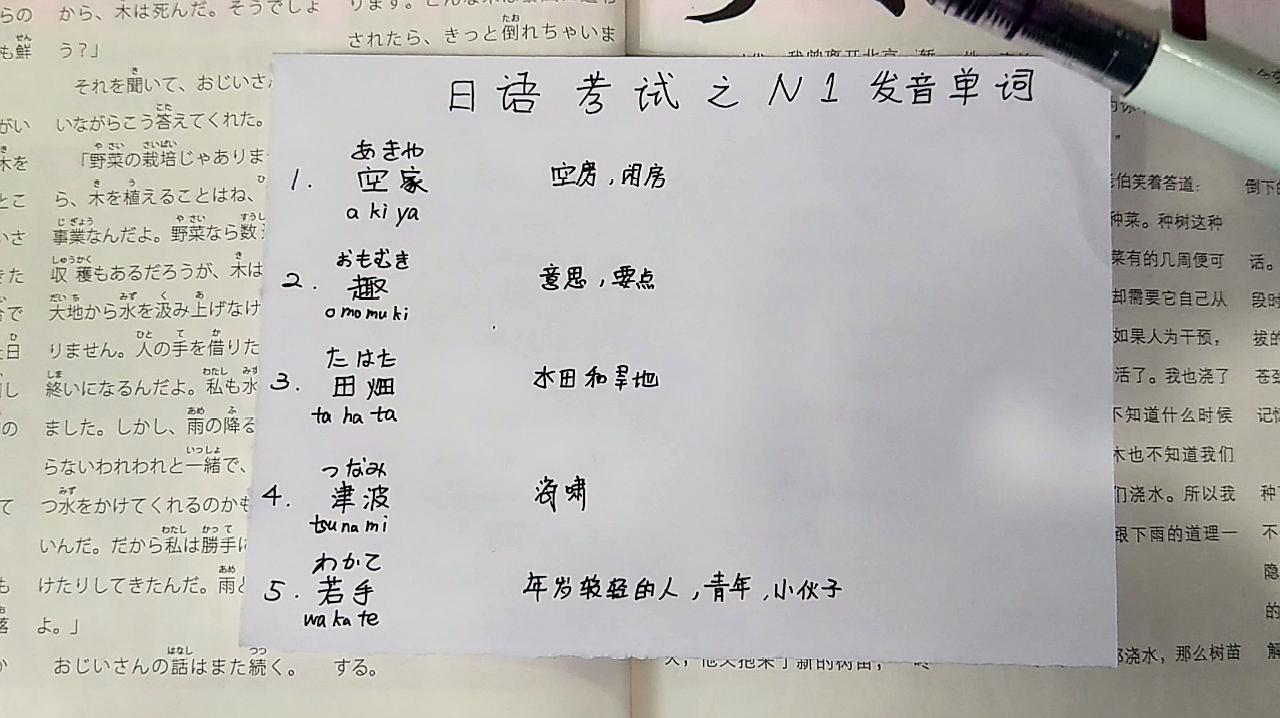 らの
も鮮
がい
木を
とこ
いさ
きた
合で
た日
倒し
切の
して
から、木は死んだ。そうでしょ
う?」
それを聞いて、おじいさ
いながらこう答えてくれた。
「野菜の栽培じゃありま
ら、木を植えることはね、
事業なんだよ。野菜なら数
収穫もあるだろうが、木は
大地から水を汲み上げなけ
りません。人の手を借りた
終いになるんだよ。私も水
ました。しかし、雨の降る
らないわれわれと一緒で、
つ水をかけてくれるのかも
いんだ。だから私は勝手に
けたりしてきたんだ。雨と
よ。」
おじいさんの話はまた続く。
されたら、きっと倒れちゃいま
する。
日语考试之N1发音单词
あきや
1. 空家 空房,闲房
akiya
おもむき
2. 趣 意思,要点
omomuki
たはた
3. 田畑 水田和旱地
tahata
つなみ
4. 津波 海啸
tsunami
わかて
5. 若手 年岁较轻的人,青年,小伙子
wakate
老伯笑着答道:
种菜。种树这种
菜有的几周便可
却需要它自己从
如果人为干预,
活了。我也浇了
不知道什么时候
木也不知道我们
们浇水。所以我
跟下雨的道理一
浇水,那么树苗
倒下的
话。
段时
拔的
苍劲
记忆
种
不
隐
的
解